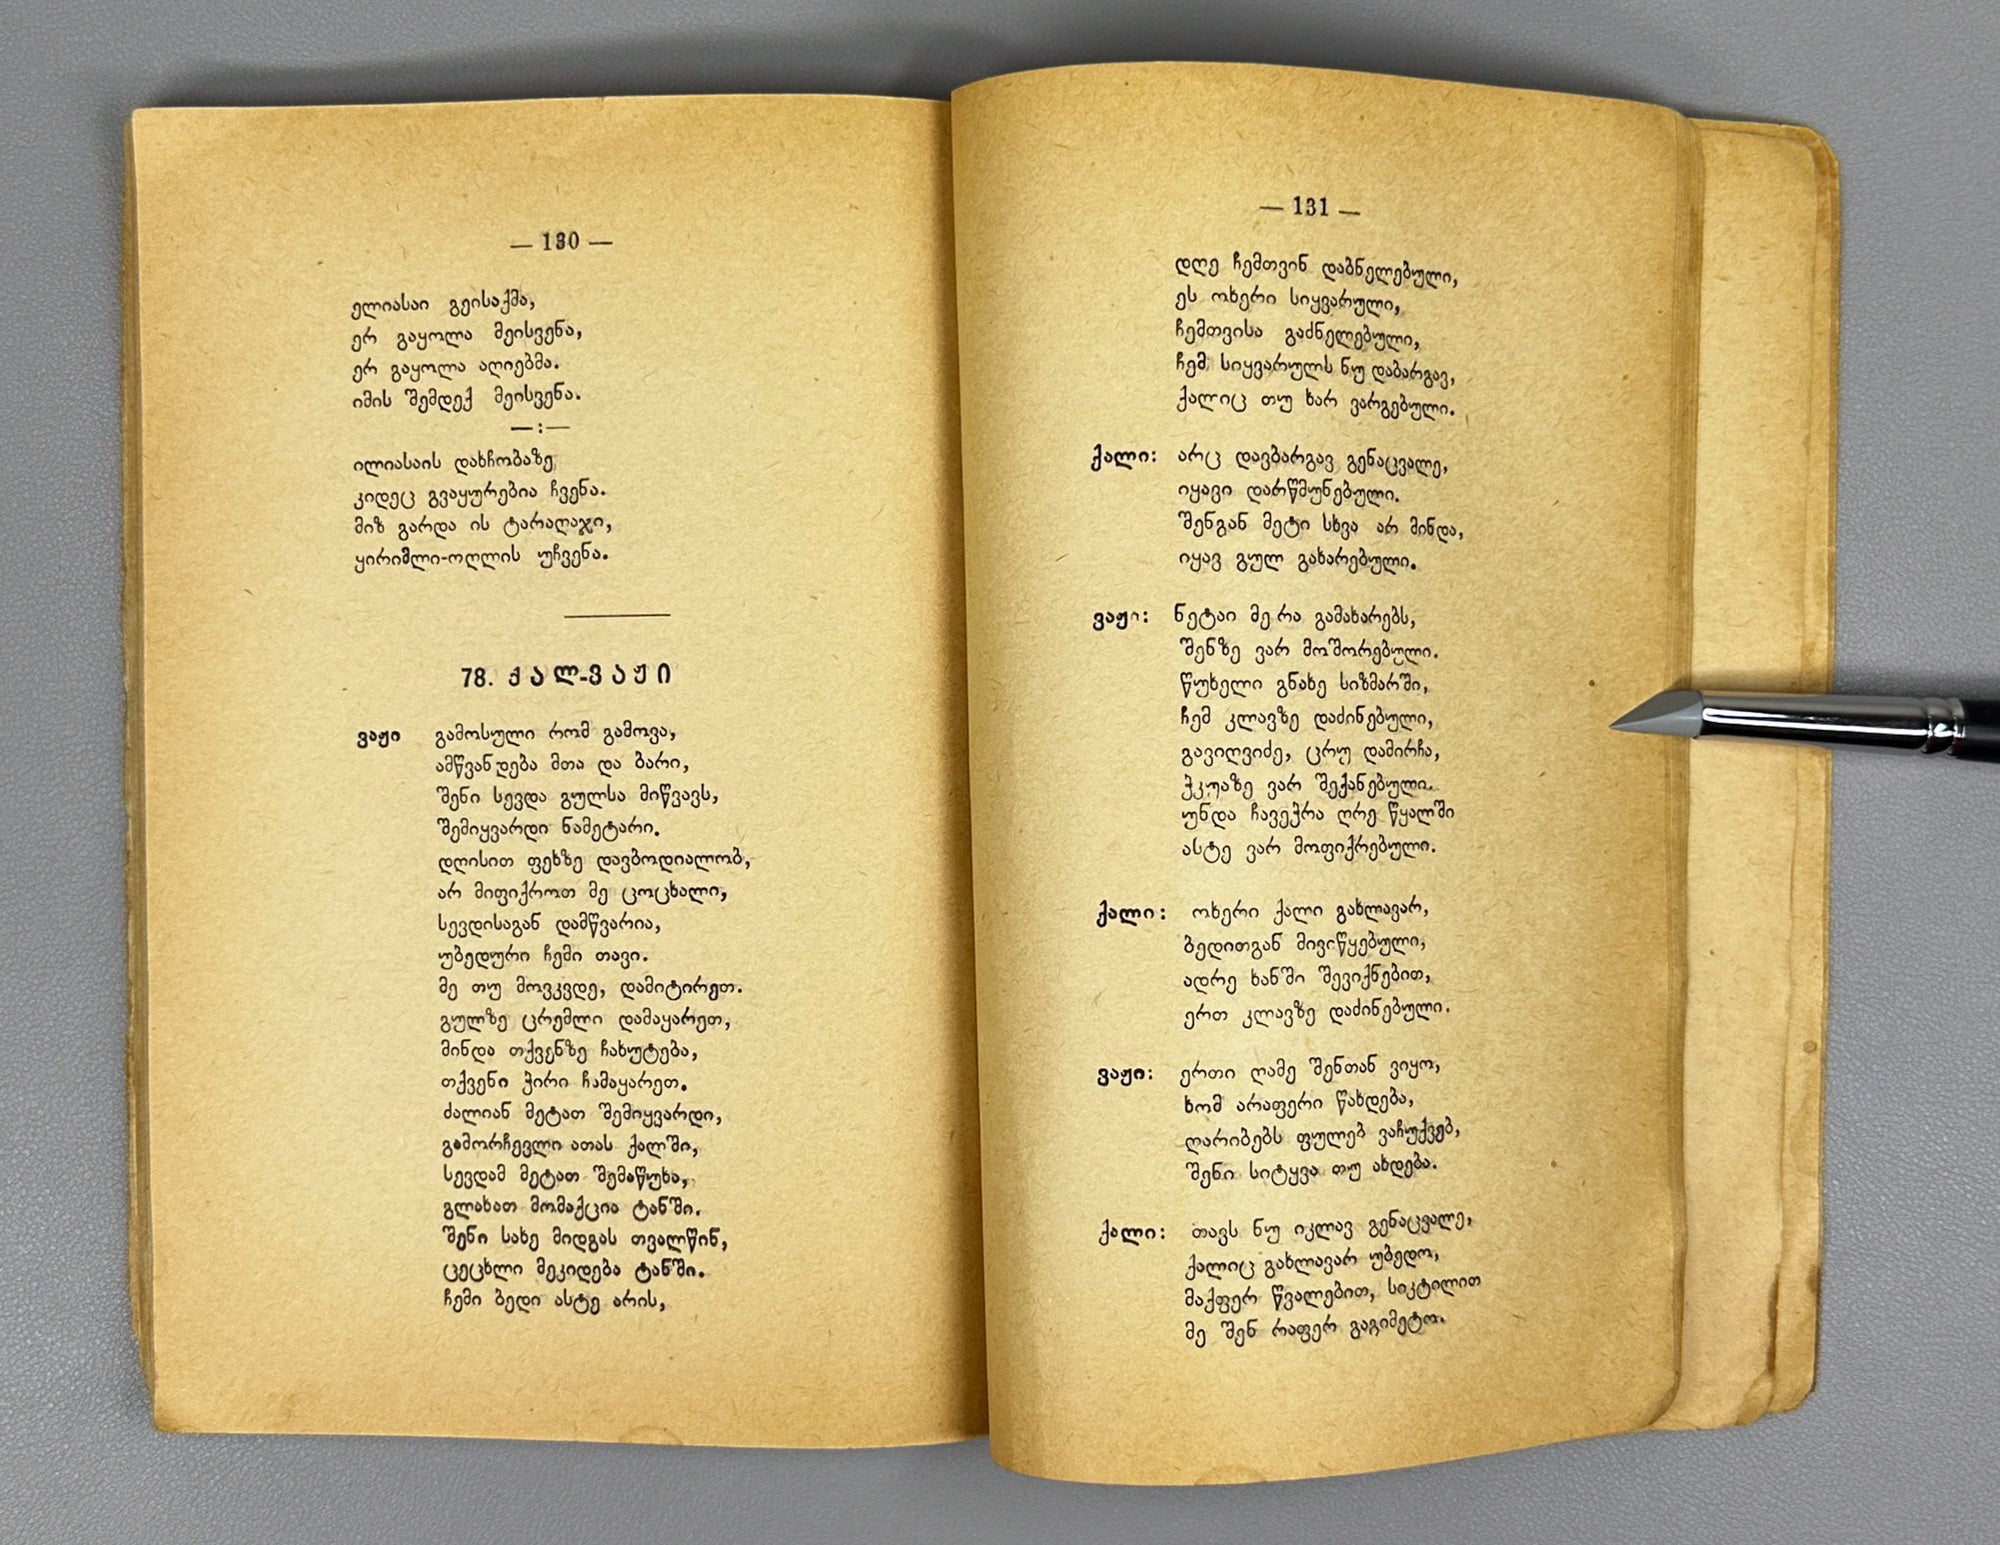 — 130 —
ელიასაი გეისაქმა,
ერ გაყოლა მეისვენა,
ერ გაყოლა აღიებმა.
იმის შემდექ მეისვენა.
—:—
ილიასაის დახჩობაზე
კიდეც გვაყურებია ჩვენა.
მიზ გარდა ის ტარაღაჯი,
ყირიმლი-ოღლის უჩვენა.
78. ქალ-ვაჟი
ვაჟი გამოსული რომ გამოვა,
ამწვანდება მთა და ბარი,
შენი სევდა გულსა მიწვავს,
შემიყვარდი ნამეტარი.
დღისით ფეხზე დავბოდიალობ,
არ მიფიქროთ მე ცოცხალი,
სევდისაგან დამწვარია,
უბედური ჩემი თავი.
მე თუ მოვკვდე, დამიტირეთ.
გულზე ცრემლი დამაყარეთ,
მინდა თქვენზე ჩახუტება,
თქვენი ჭირი ჩამაყარეთ.
ძალიან მეტათ შემიყვარდი,
გამორჩევლი ათას ქალში,
სევდამ მეტათ შემაწუხა,
გლახათ მომაქცია ტანში.
შენი სახე მიდგას თვალწინ,
ცეცხლი მეკიდება ტანში.
ჩემი ბედი ასტე არის,
— 131 —
დღე ჩემთვინ დაბნელებული,
ეს ოხერი სიყვარული,
ჩემთვისა გაძნელებული,
ჩემ სიყვარულს ნუ დაბარგავ,
ქალიც თუ ხარ ვარგებული.
ქალი: არც დავბარგავ გენაცვალე,
იყავი დარწმუნებული.
შენგან მეტი სხვა არ მინდა,
იყავ გულ გახარებული.
ვაჟი: ნეტაი მე რა გამახარებს,
შენზე ვარ მოშორებული.
წუხელი გნახე სიზმარში,
ჩემ კლავზე დაძინებული,
გავიღვიძე, ცრუ დამირჩა,
ჭკუაზე ვარ შექანებული.
უნდა ჩავეჭრა ღრე წყალში
ასტე ვარ მოფიქრებული.
ქალი: ოხერი ქალი გახლავარ,
ბედითგან მივიწყებული,
ადრე ხანში შევიქნებით,
ერთ კლავზე დაძინებული.
ვაჟი: ერთი ღამე შენთან ვიყო,
ხომ არაფერი წახდება,
ღარიბებს ფულებ ვაჩუქვებ,
შენი სიტყვა თუ ახდება.
ქალი: თავს ნუ იკლავ გენაცვალე,
ქალიც გახლავარ უბედო,
მაქფერ წვალებით, სიკტილით
მე შენ რაფერ გაგიმეტო.